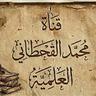 قناة
محمد القحطاني
العلمية